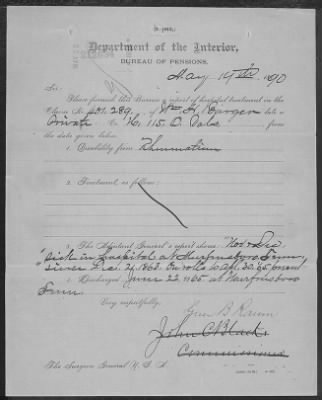 Department of the Interior,
BUREAU OF PENSIONS,
May 14th 1890
Sir:
Please furnish this Bureau a report of hospital treatment in the
claim No. 289, of Wm H. Karger late a
Private Co. H, 115 O. Vols from
the date given below.
1. Disability from Rheumatism
2. Treatment, as follows:
3. The Adjutant General's report shows: "Nov & Dec
"Sick in hospital at Murfreesboro Tenn,
since Dec. 1863. On rolls to Apl. 30, 65 present
4. Discharged June 22 1865 at Murfreesboro
Tenn
Very respectfully,
Green B Raum
John C Black
Commissioner
The Surgeon General U. S. A.